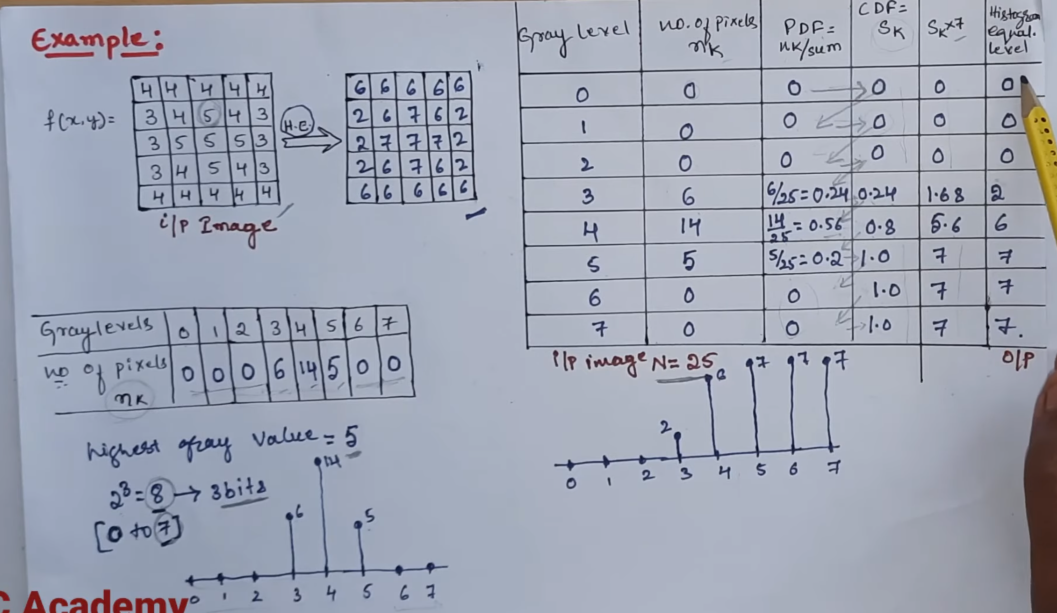 Example:
f(x,y)=
4 4 4 4 4
3 4 5 4 3
3 5 5 5 3
3 4 5 4 3
4 4 4 4 4
i/p Image
H.E
6 6 6 6 6
2 6 7 6 2
2 7 7 7 2
2 6 7 6 2
6 6 6 6 6
Gray levels 0 1 2 3 4 5 6 7
no of pixels nK 0 0 0 6 14 5 0 0
highest gray value = 5
2³=8 → 3bits
[0 to 7]
6 14 5
0 1 2 3 4 5 6 7
C Academy
Gray level no. of pixels nK PDF= nK/sum CDF= SK SK×7 Histogram equal. level
0 0 0 0 0 0
1 0 0 0 0 0
2 0 0 0 0 0
3 6 6/25=0.24 0.24 1.68 2
4 14 14/25=0.56 0.8 5.6 6
5 5 5/25=0.2 1.0 7 7
6 0 0 1.0 7 7
7 0 0 1.0 7 7.
i/p image N=25 o/p
2 6 7 7 7
0 1 2 3 4 5 6 7